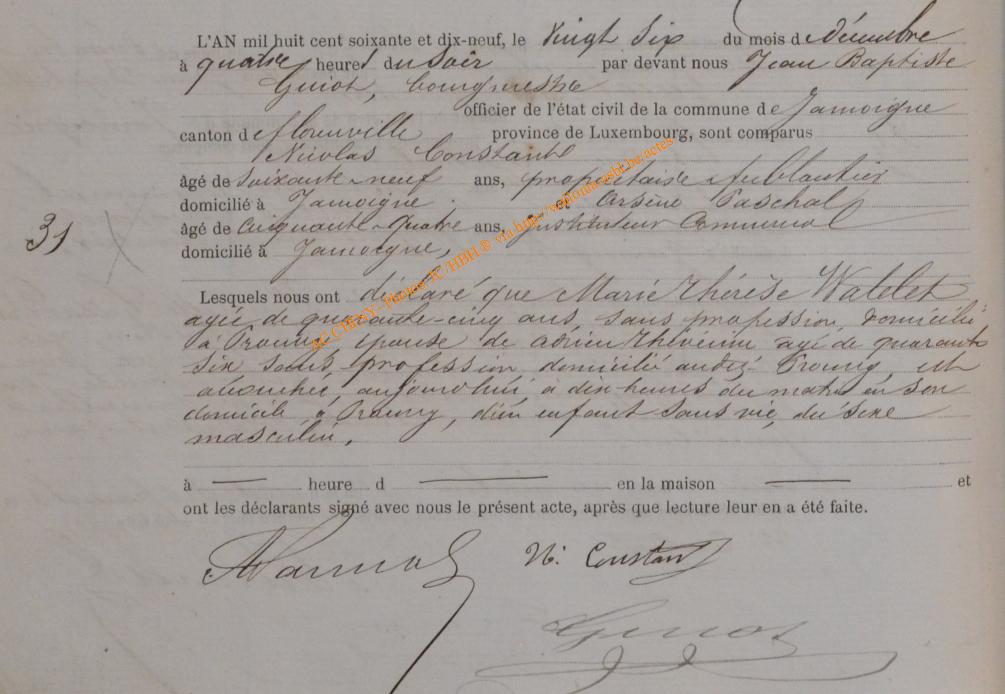 L'AN mil huit cent soixante et dix-neuf, le vingt six du mois de décembre
à quatre heures du soir par devant nous Jean Baptiste
Guiot, bourgmestre
officier de l'état civil de la commune de Jamoigne
canton de florenville province de Luxembourg, sont comparus
Nicolas Constant
âgé de soixante-neuf ans, propriétaire
domicilié à Jamoigne et Arsène Paschal
31
âgé de Cinquante-quatre ans, Instituteur Communal
domicilié à Jamoigne,
Lesquels nous ont déclaré que Marie Thérèse Watelet
agée de quarante-cinq ans, sans profession, domicilié
à Prouvy, épouse de adrien thévenin agé de quarante
six sans profession domicilié audit Prouvy, est
accouchée, aujourd'hui, à dix heures du matin en son
domicile, à Prouvy, d'un enfant sans vie, du sexe
masculin.
à heure d en la maison et
ont les déclarants signé avec nous le présent acte, après que lecture leur en a été faite.
N. Constant
Guiot